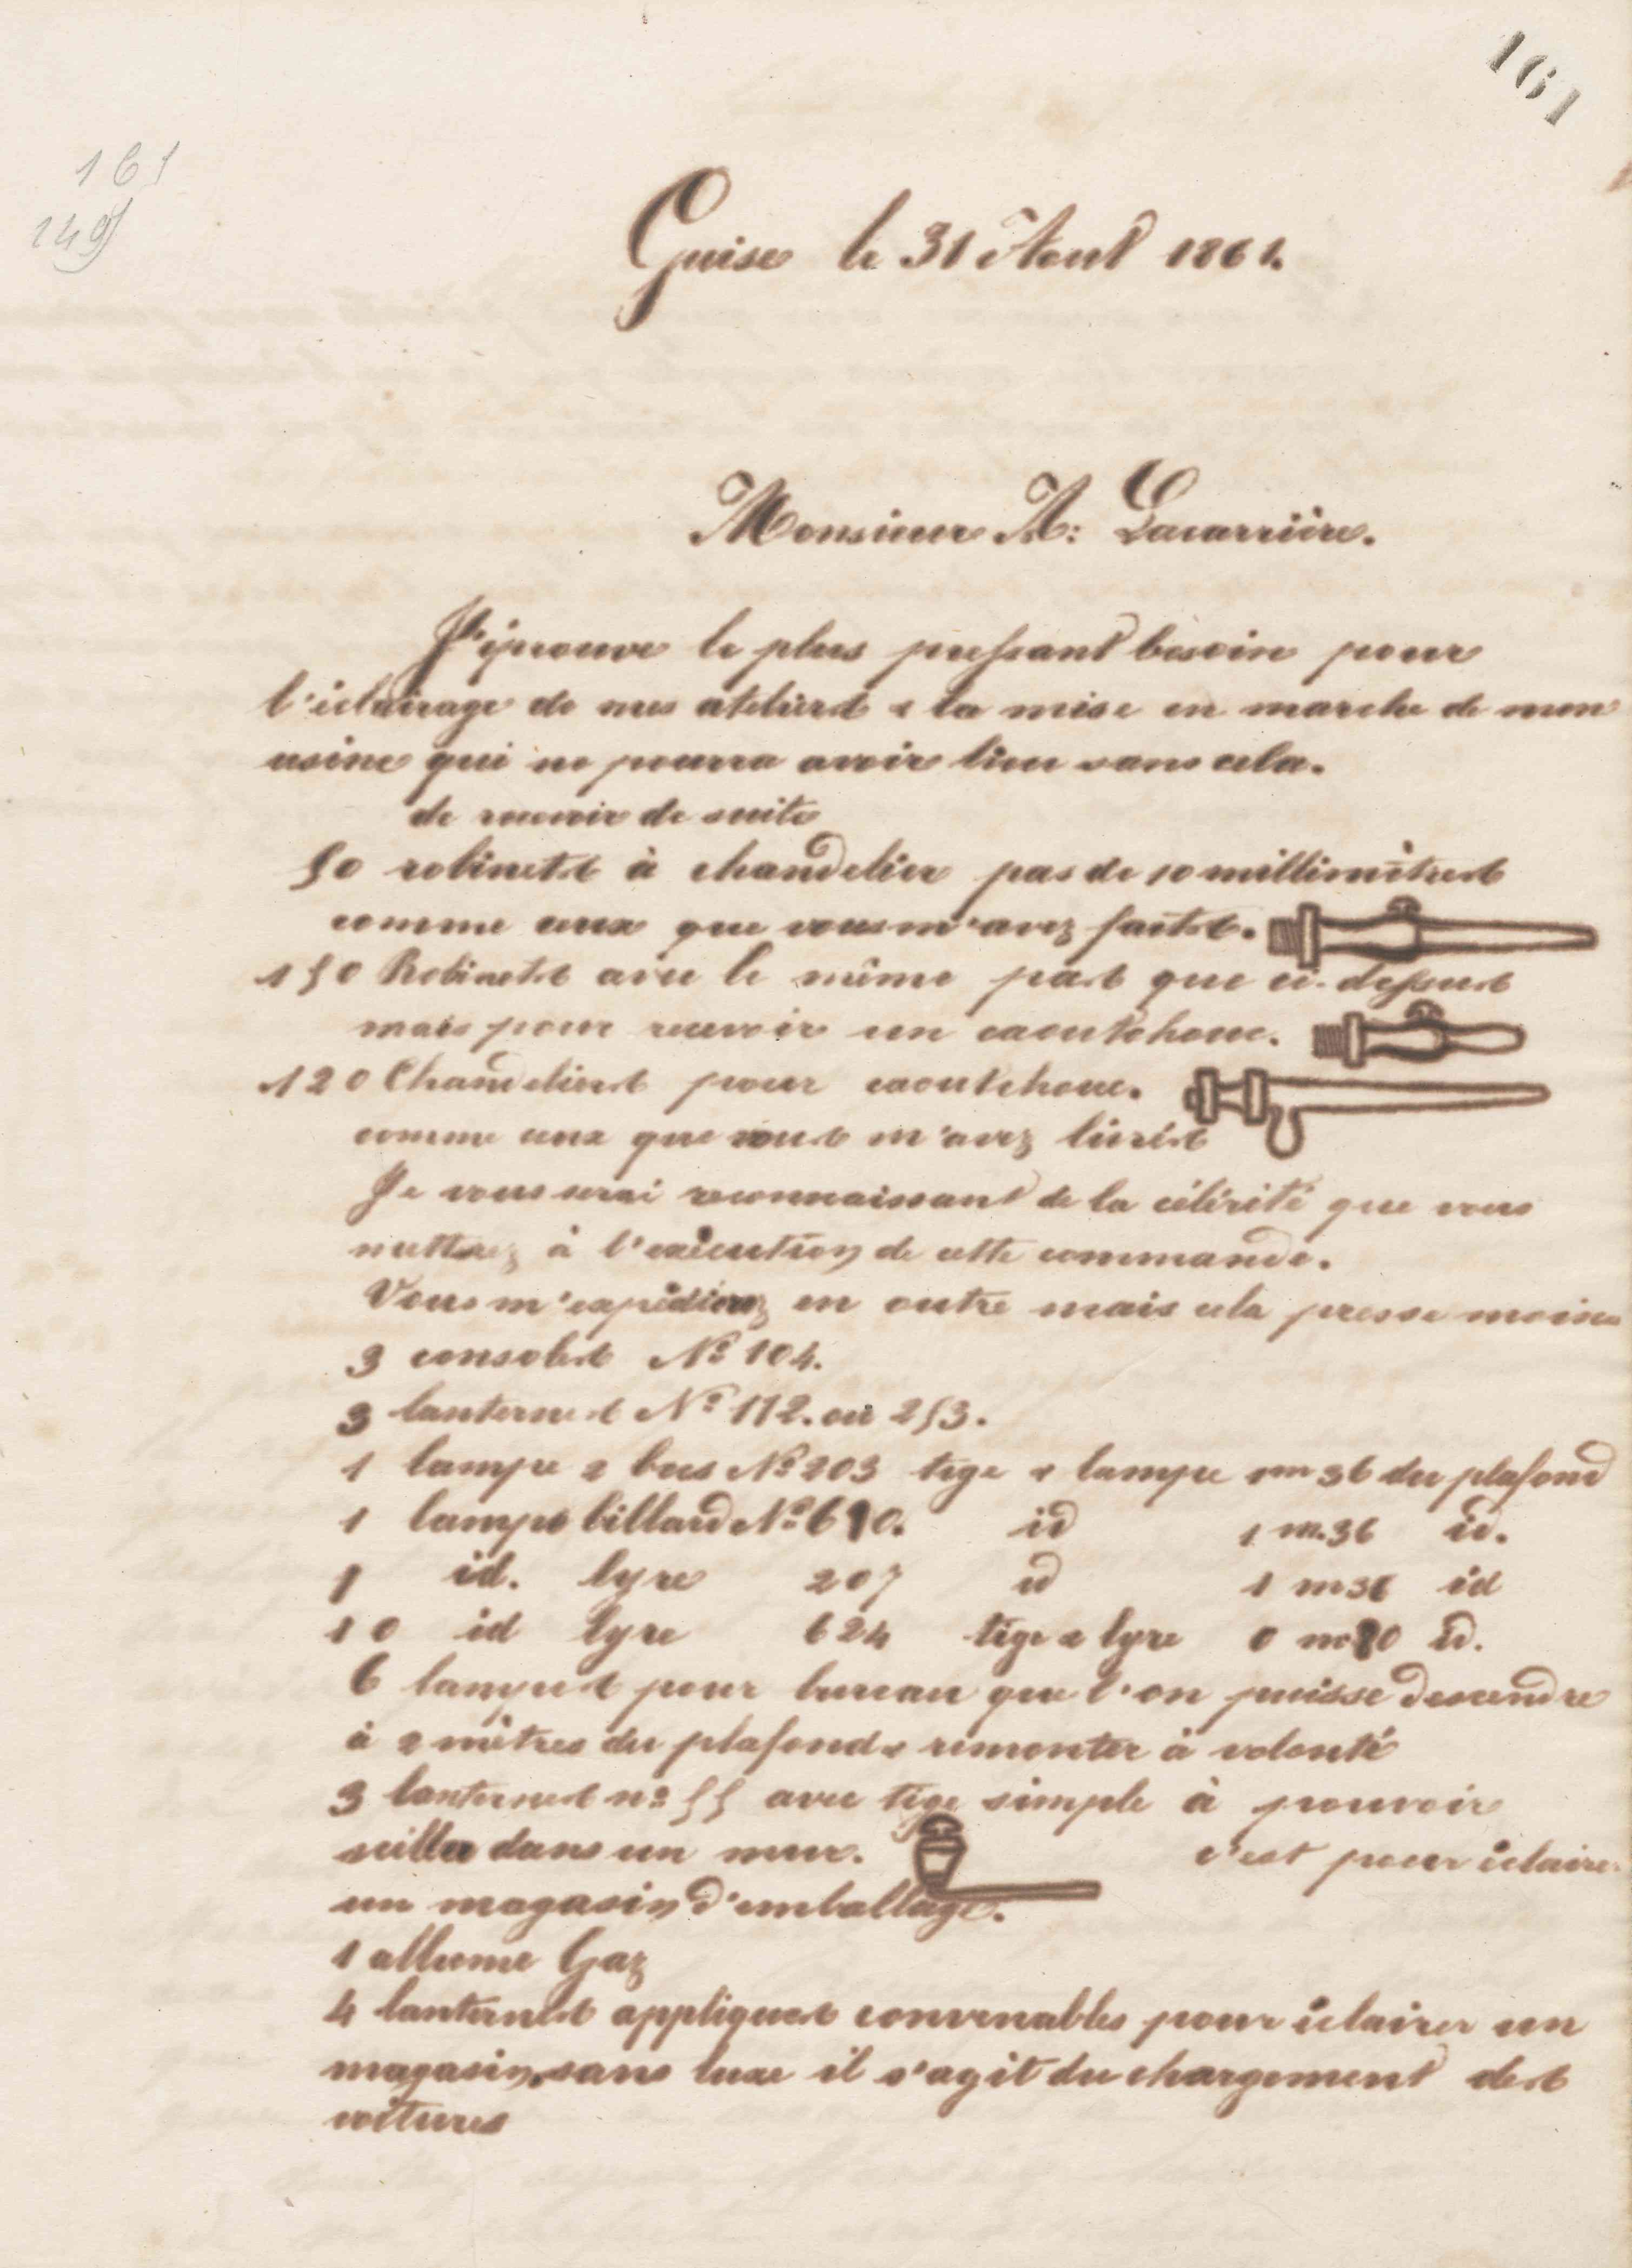 161
161
149
Guise le 31 Août 1861.
Monsieur A: Lacarrière.
J'éprouve le plus pressant besoin pour
l'éclairage de mes ateliers & la mise en marche de mon
usine qui ne pourra avoir lieu sans cela.
de recevoir de suite
50 robinets à chandelier pas de 10 millimètres
comme ceux que vous m'avez faits.
150 Robinets avec le même pas que ci-dessus
mais pour recevoir un caoutchouc.
120 Chandeliers pour caoutchouc.
comme ceux que vous m'avez livrés
Je vous serai reconnaissant de la célérité que vous
mettrez à l'exécution de cette commande.
Vous m'expédierez en outre mais cela presse moins
3 consoles No 104.
3 lanternes No 112. ou 253.
1 lampe 2 becs No 203 tige & lampe 1m 36 du plafond
1 lampe billard No 610. id 1 m.36 id.
1 id. lyre 207 id 1 m 36 id
10 id lyre 624 tige & lyre 0 m 80 id.
6 lampes pour bureau que l'on puisse descendre
à 2 mètres du plafond & remonter à volonté
3 lanternes no 55 avec tige simple à pouvoir
sceller dans un mur. c'est pour éclairer
un magasin d'emballage.
1 allume Gaz
4 lanternes appliques convenables pour éclairer un
magasin, sans luxe il s'agit du chargement des
voitures